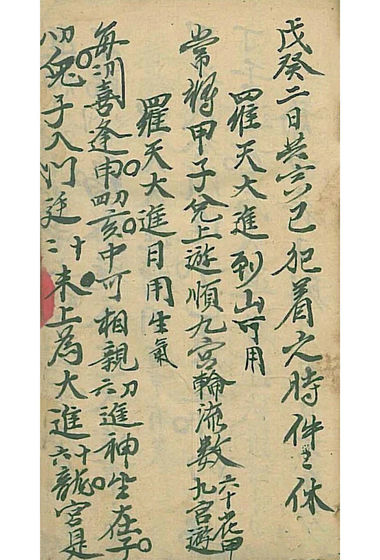 戊癸二日共寅巳犯着之時件〻休
羅天大進到山可用
常將甲子兌上遊順九宮輪流數六十花甲九宮遊
羅天大進日用生氣
每初喜逢申四初亥中可相親六初進神坐在子
初兔子入門廷二十未上為大進六十龍宮是